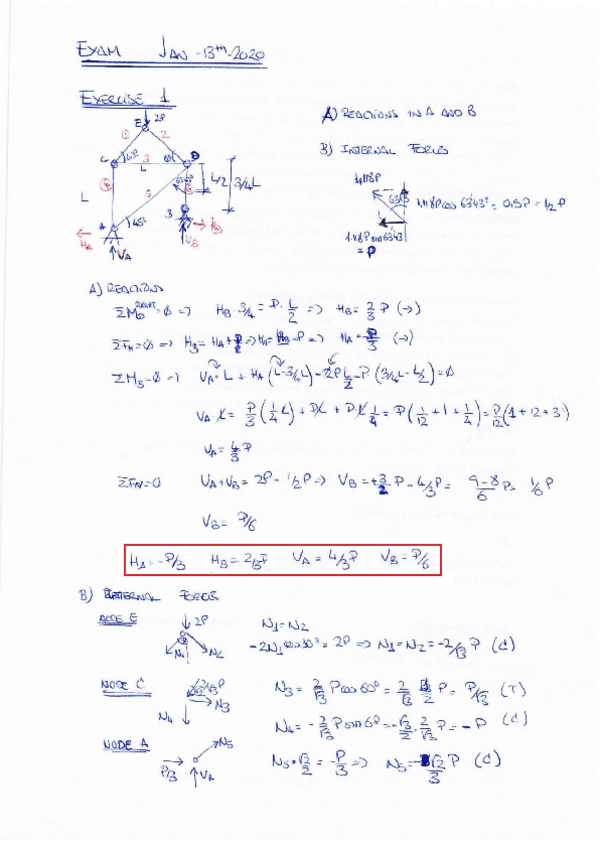 EXAM JAN-13th-2020
EXERCISE 1
A) REACTIONS IN A AND B
B) INTERNAL FORCES
E 2P
1 2
C 60º 3 60º D
L
4 5
L L/2 3/4L
A 45º B
HA VA VB HB
1.118P
63'43º
1.118P cos 63'43º = 0.5P = 1/2 P
1.118P sin 63'43
= P
A) REACTIONS
=> HB · 3/4 = P · L/2 => HB = 2/3 P (→)
ΣFH=0 => HB = HA + P => HA = HB - P => HA = - P/3 (→)
ΣMB=0 => VA · L + HA (L - 3/4L) - 2P L/2 - P (3/4L - L/2) = 0
VA · L = P/3 (1/4 L) + PL + PL 1/4 = P (1/12 + 1 + 1/4) = P/12 (1 + 12 + 3)
VA = 4/3 P
ΣFV=0 VA + VB = 2P - 1/2P => VB = +3/2 P - 4/3 P = 9-8/6 P = 1/6 P
VB = P/6
HA = -P/3 HB = 2/3P VA = 4/3P VB = P/6
B) INTERNAL FORCES
NODE E
2P
N1 N2
N1 = N2
-2N1 cos30º = 2P => N1 = N2 = -2/√3 P (C)
NODE C
2/√3 P
N3
N4
N3 = 2/√3 P cos 60º = 2/√3 1/2 P = P/√3 (T)
N4 = - 2/√3 P sin 60º = - √3/2 · 2/√3 P = - P (C)
NODE A
N5
P/3 VA
N5 · √2/2 = -P/3 => N5 = -√2/3 P (C)